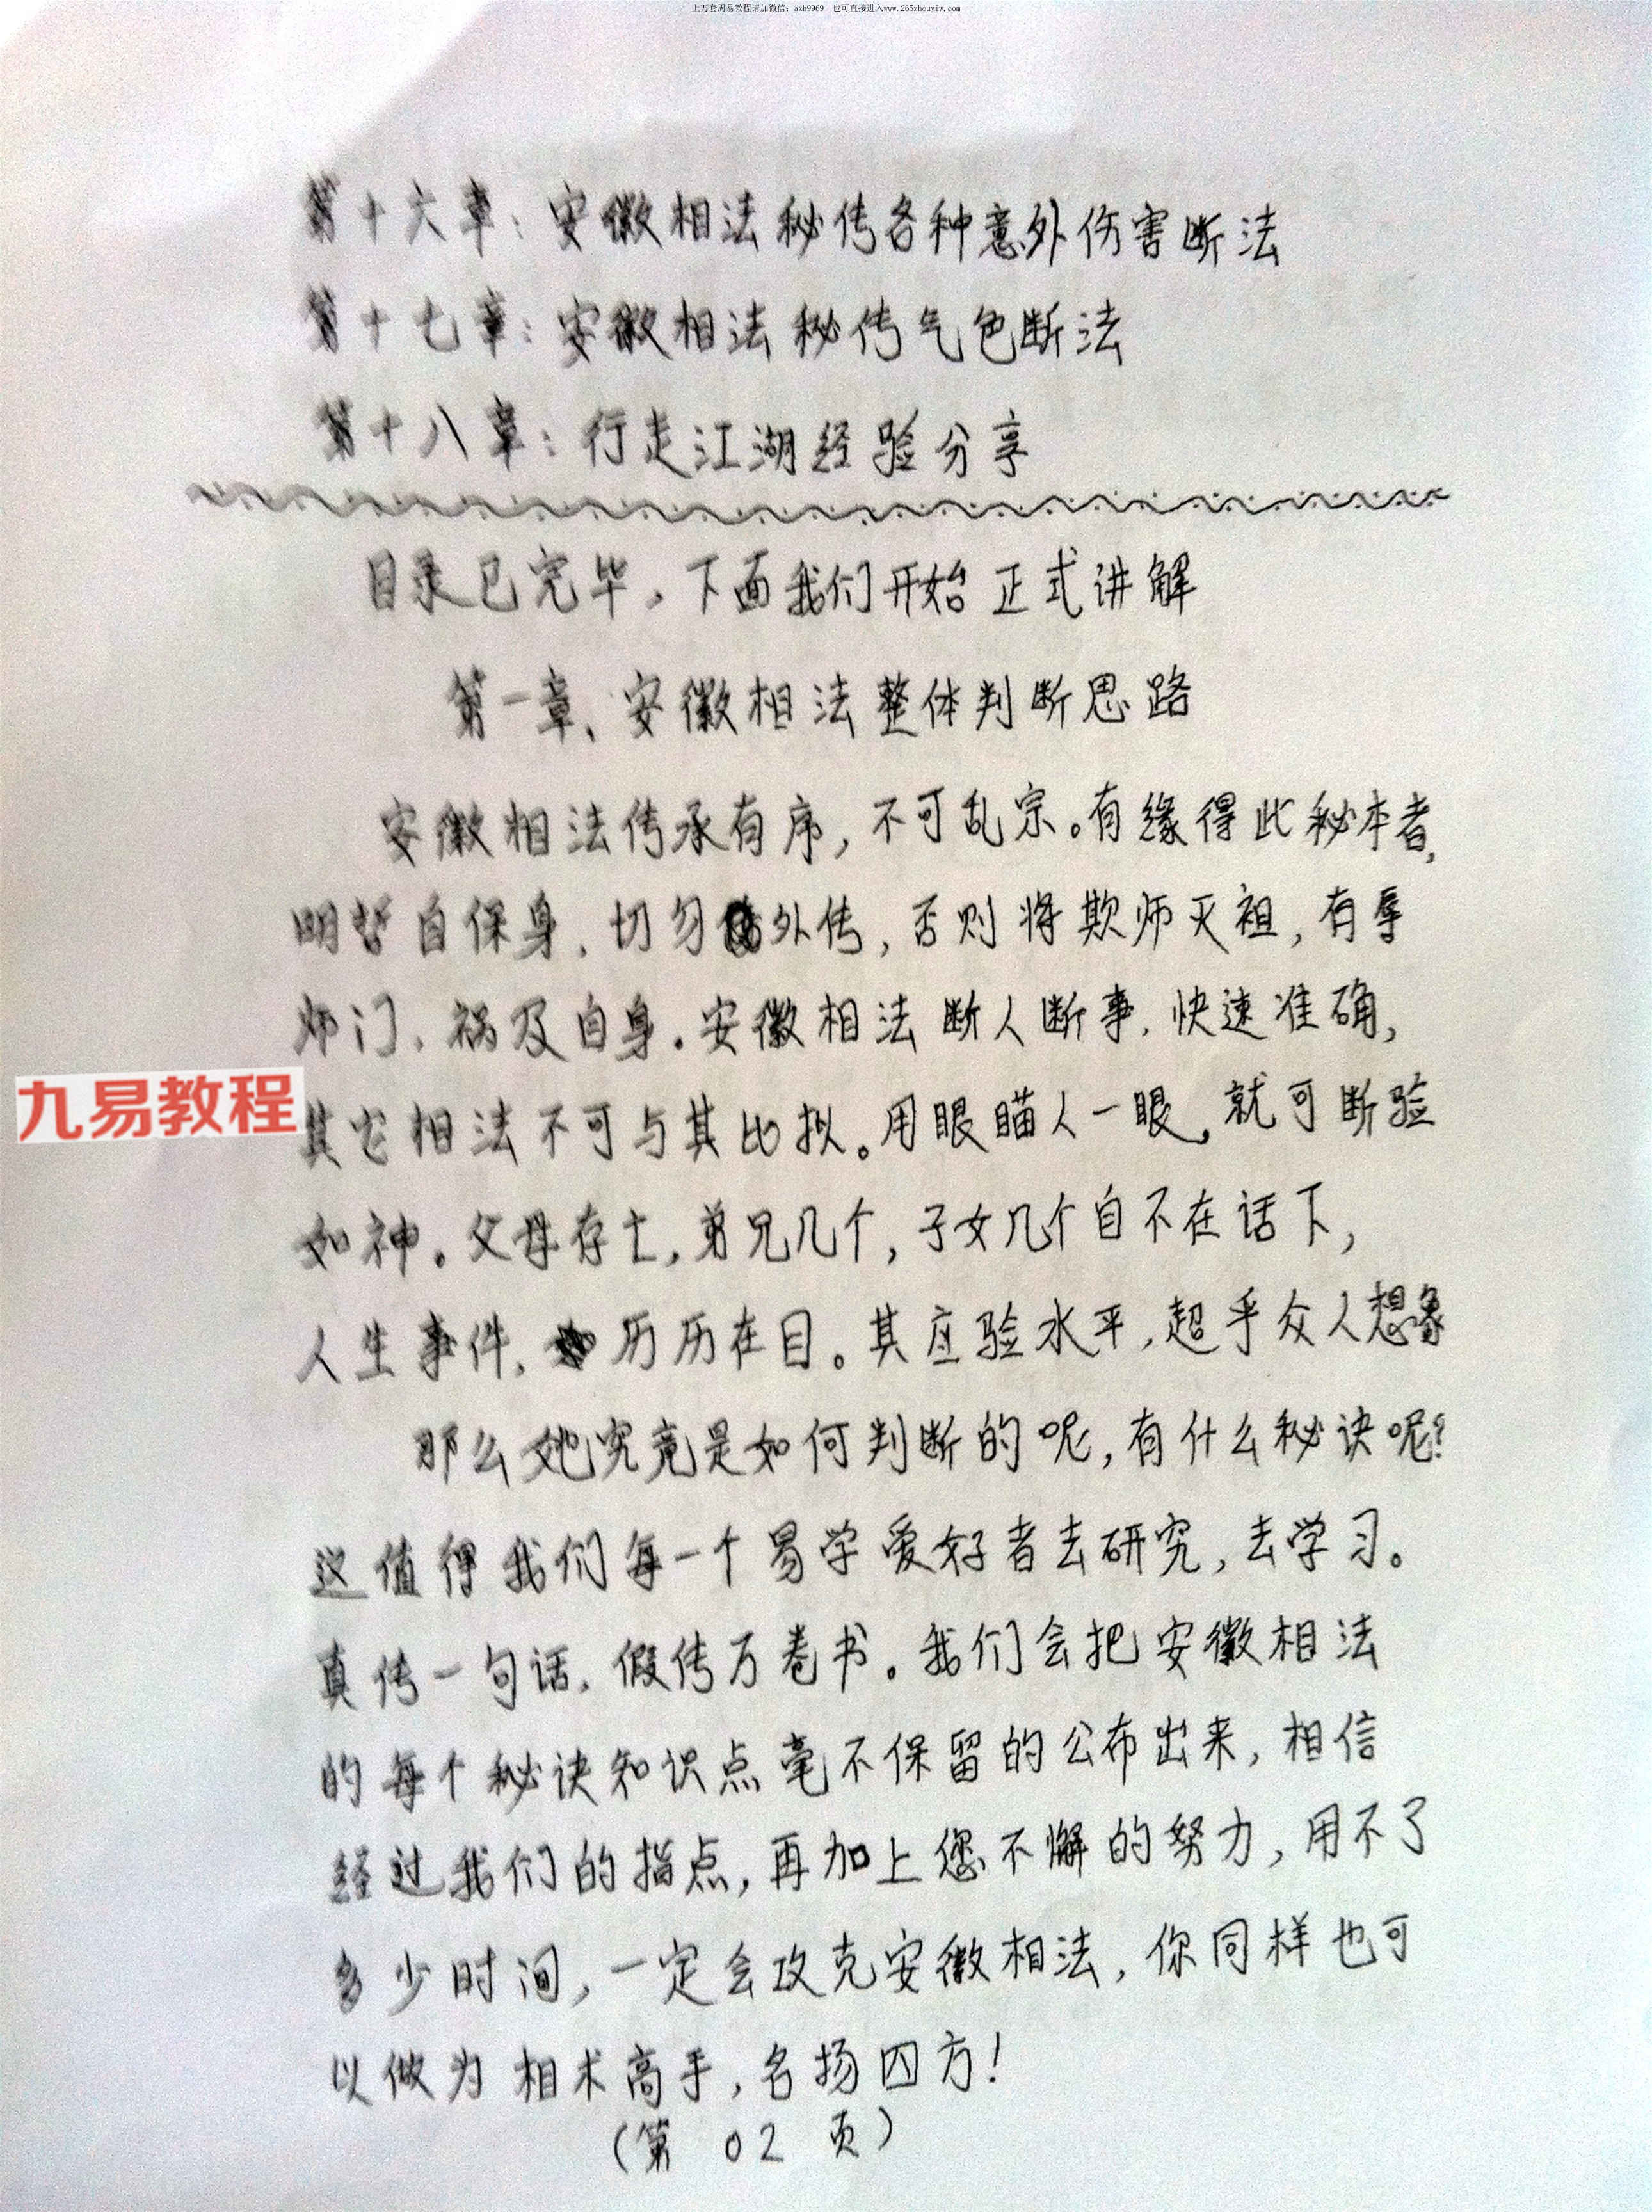 上万套周易教程请加微信：azh9969　也可直接进入www.265zhouyiw.com
第十六章：安徽相法秘传各种意外伤害断法
第十七章：安徽相法秘传气色断法
第十八章：行走江湖经验分享
目录已完毕，下面我们开始正式讲解
第一章、安徽相法整体判断思路
安徽相法传承有序，不可乱宗。有缘得此秘本者，
明哲自保身、切勿外传，否则将欺师灭祖，有辱
师门、祸及自身。安徽相法断人断事、快速准确，
九易教程
其它相法不可与其比拟。用眼瞄人一眼，就可断验
如神。父母存亡，弟兄几个，子女几个自不在话下，
人生事件、历历在目。其应验水平，超乎众人想象
那么她究竟是如何判断的呢，有什么秘诀呢？
这值得我们每一个易学爱好者去研究，去学习。
真传一句话，假传万卷书。我们会把安徽相法
的每个秘诀知识点毫不保留的公布出来，相信
经过我们的指点，再加上您不懈的努力，用不了
多少时间，一定会攻克安徽相法，你同样也可
以做为相术高手，名扬四方！
（第 02 页）